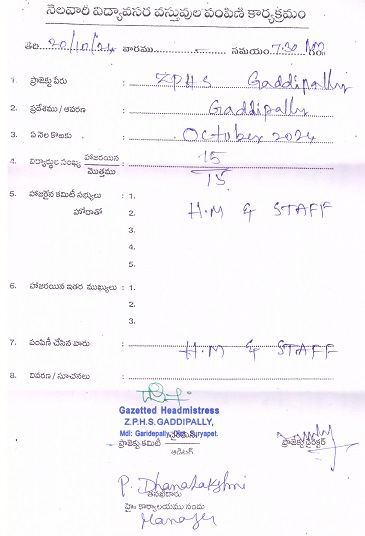 నెలవారీ విద్యావసర వస్తువుల పంపిణి కార్యక్రమం
తేది 20/10/24 వారము - సమయం: 7:30 AM
1. ప్రాజెక్టు పేరు : ZPHS Gaddipally
2. ప్రదేశము / ఆవరణ : Gaddipally
3. ఏ నెల కొఱకు : October 2024
4. విద్యార్థుల సంఖ్య హాజరయిన : 15
మొత్తము 15
5. హాజరైన కమిటీ సభ్యులు : 1.
హోదాతో 2. H.M & STAFF
3.
4.
5.
6. హాజరయిన ఇతర ముఖ్యులు : 1.
2.
3.
7. పంపిణీ చేసిన వారు : H.M & STAFF
8. వివరణ / సూచనలు :
Gazetted Headmistress
Z.P.H.S. GADDIPALLY,
Mdl: Garidepally, Suryapet.
ప్రాజెక్టు కమిటీ ప్రాజెక్టు డైరెక్టర్
ఆడిటర్
P. Dhanalakshmi
తనిఖీదారు
హైం కార్యాలయము నందు
Manager